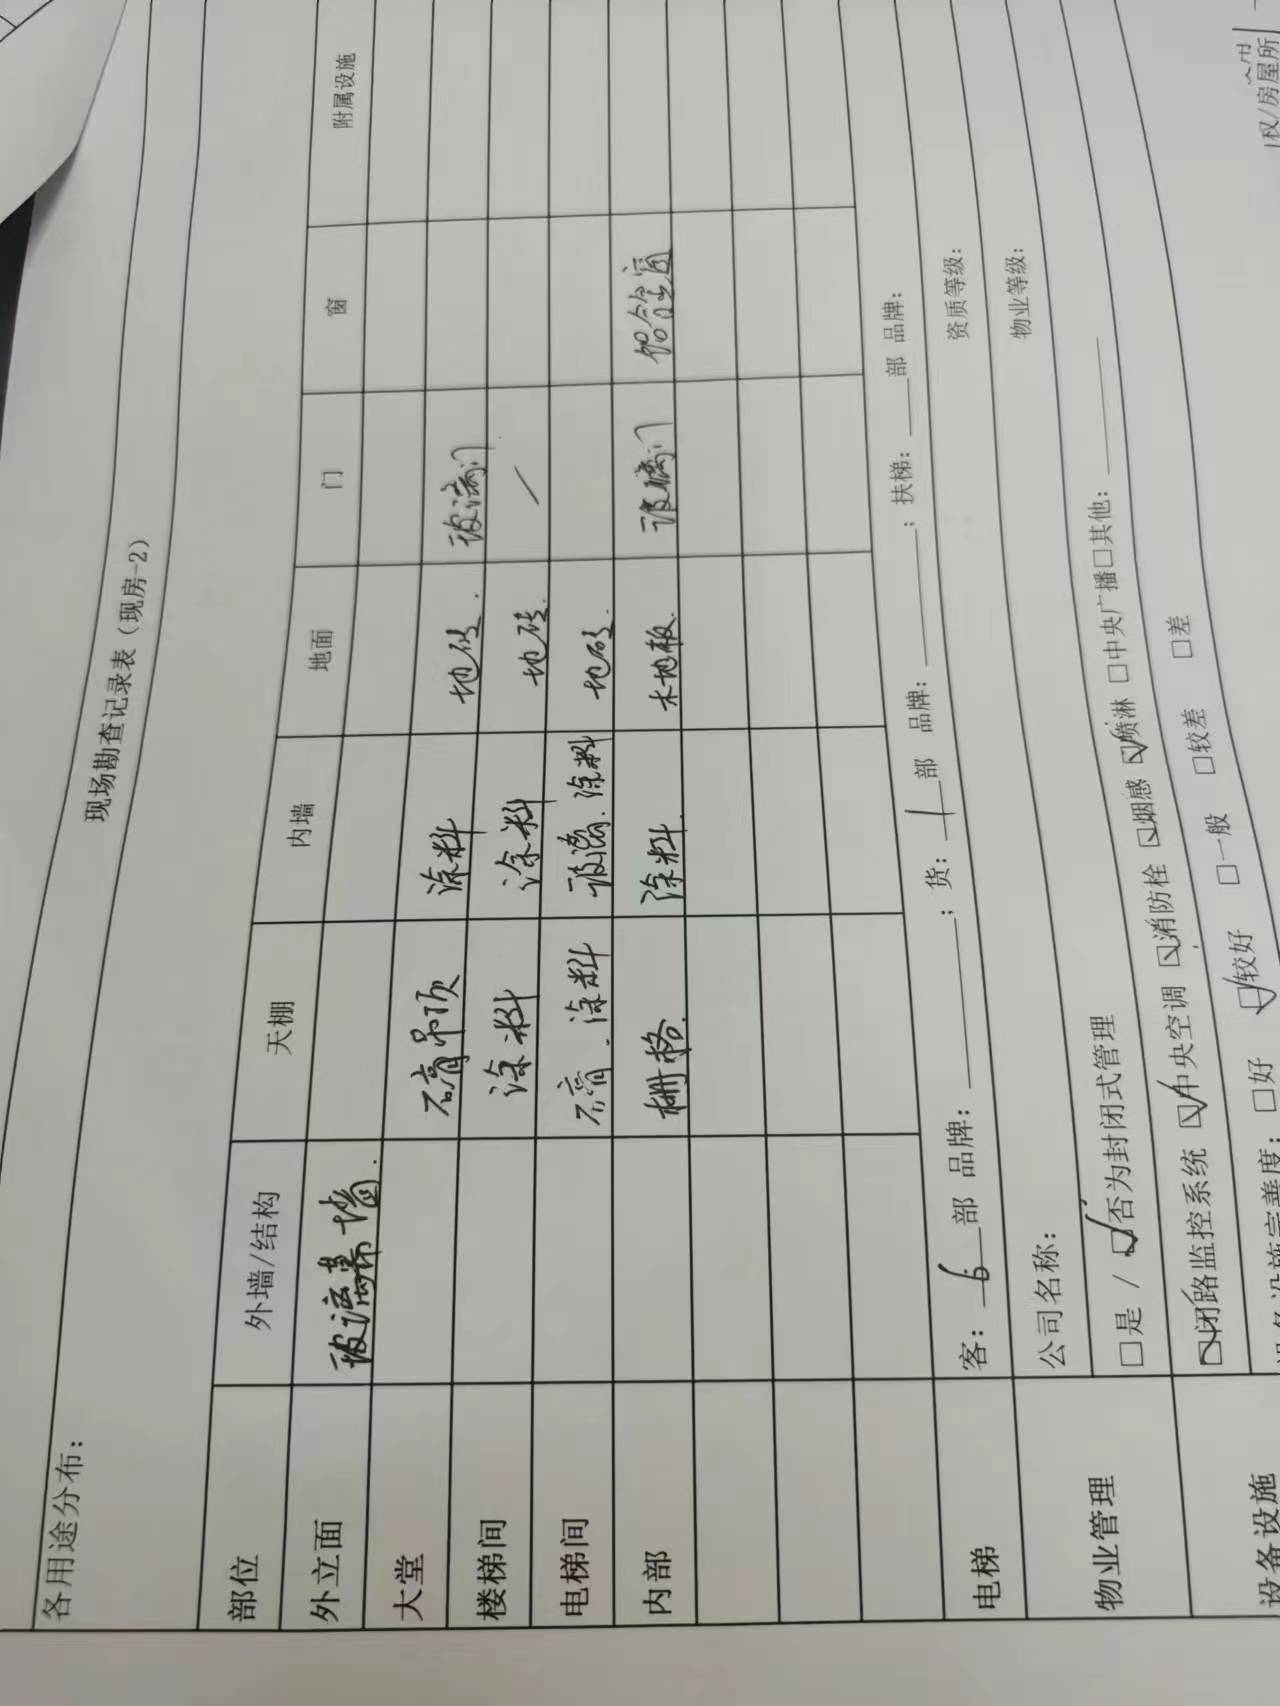 现场勘查记录表（现房-2）
各用途分布：
部位 外墙/结构 天棚 内墙 地面 门 窗 附属设施
外立面 玻璃幕墙.
大堂 石膏吊顶 涂料 地砖. 玻璃门
楼梯间 涂料 涂料 地砖. /
电梯间 石膏.涂料 玻璃.涂料 地砖.
内部 栅格. 涂料. 木地板. 玻璃门 铝合金窗
电梯 客：6部 品牌：______；货：1部 品牌：______；扶梯：___部 品牌：
物业管理 公司名称： 资质等级：
□是 / ☑否为封闭式管理 物业等级：
设备设施 ☑闭路监控系统 ☑中央空调 ☑消防栓 ☑烟感 ☑喷淋 □中央广播□其他：______
设备设施完善度：□好 ☑较好 □一般 □较差 □差
权/房屋所